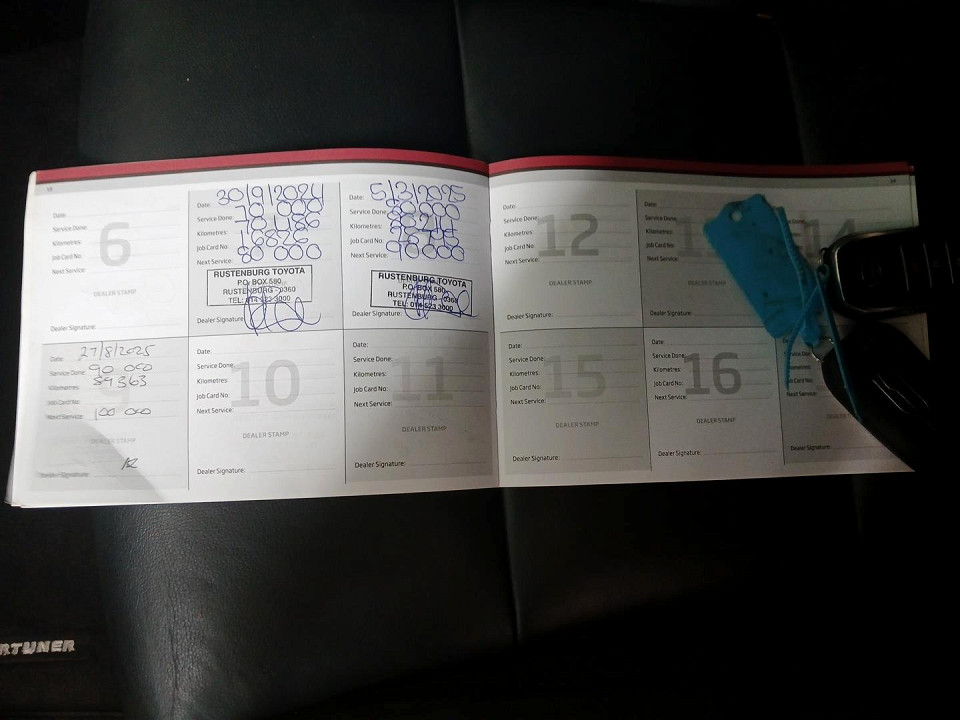 Date:
Service Done:
Kilometres:
Job Card No:
Next Service:
6
DEALER STAMP
Dealer Signature:
Date: 30/9/2024
Service Done: 70 000
Kilometres: 78486
Job Card No: 16826
Next Service: 80 000
RUSTENBURG TOYOTA
P.O. BOX 580
RUSTENBURG - 0360
TEL: 014 523 3000
Dealer Signature:
Date: 5/3/2025
Service Done: 80 000
Kilometres:
Job Card No:
Next Service: 90 000
RUSTENBURG TOYOTA
P.O. BOX 580
RUSTENBURG - 0360
TEL: 014 523 3000
Dealer Signature:
Date: 27/8/2025
Service Done: 90 000
Kilometres: 89363
Job Card No:
Next Service: 100 000
DEALER STAMP
Dealer Signature:
Date:
Service Done:
Kilometres:
Job Card No:
Next Service:
10
DEALER STAMP
Dealer Signature:
Date:
Service Done:
Kilometres:
Job Card No:
Next Service:
11
DEALER STAMP
Dealer Signature:
Date:
Service Done:
Kilometres:
Job Card No:
Next Service:
12
DEALER STAMP
Dealer Signature:
Date:
Service Done:
Kilometres:
Job Card No:
Next Service:
14
Dealer Signature:
Date:
Service Done:
Kilometres:
Job Card No:
Next Service:
15
DEALER STAMP
Dealer Signature:
Date:
Service Done:
Kilometres:
Job Card No:
Next Service:
16
DEALER STAMP
Dealer Signature:
Dealer Signature:
RTUNER